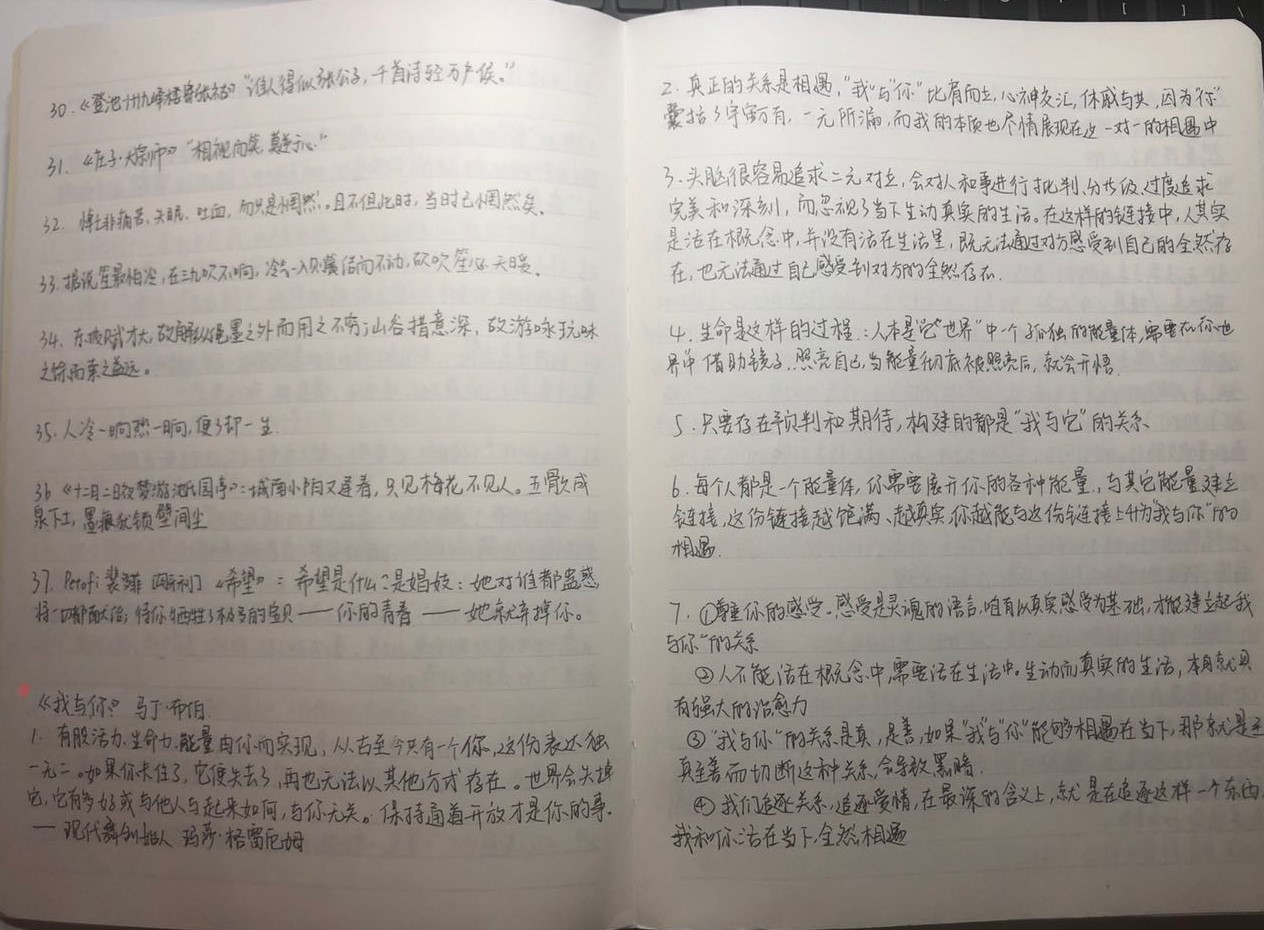 30.《登池州九峰楼寄张祜》“谁人得似张公子，千首诗轻万户侯。”
31.《庄子·大宗师》“相视而笑 莫逆于心”
32. 悼亡非痛苦、失眠、吐血，而只是惘然。且不但此时，当时已惘然矣。
33.据说笙最怕冷，在三九吹不响，冷气一入则簧结而不动，故吹笙必天暖。
34. 东坡赋才大，故解纵绳墨之外而用之不穷；山谷措意深，故游咏玩味
之馀而索之益远。
35.人冷一晌热一晌，便了却一生
36《十二月二日夜梦游沈氏园亭》：城南小陌又逢春，只见梅花不见人。玉骨久成
泉下土，墨痕犹锁壁间尘
37. Petofi 裴多菲 匈牙利《希望》：希望是什么？是娼妓：她对谁都蛊惑，
将一切都献给；待你牺牲了极多的宝贝——你的青春——她就弃掉你。
《我与你》 马丁·布伯.
1. 有股活力、生命力、能量由你而实现，从古至今只有一个你，这份表达独
一无二。如果你卡住了，它便失去了，再也无法以其他方式存在。世界会失掉
它，它有多好或与他人与起来如何，与你无关。保持通道开放才是你的事.
— 现代舞创始人 玛莎·格雷厄姆
2. 真正的关系是相遇，“我”与“你”比肩而立，心神交汇，休戚与共，因为“你”
囊括了宇宙万有，一无所漏，而我的本质也尽情展现在这一对一的相遇中
3.头脑很容易追求二元对立，会对人和事进行批判、分等级、过度追求
完美和深刻，而忽视了当下生动真实的生活。在这样的链接中，人其实
是活在概念中，并没有活在生活里，既无法通过对方感受到自己的全然存
在，也无法通过自己感受到对方的全然存在.
4. 生命是这样的过程：人本是“它世界”中一个孤独的能量体，需要在“你世
界”中借助镜子，照亮自己，当能量彻底被照亮后，就会开悟.
5.只要存在预判和期待，构建的都是“我与它”的关系
6.每个人都是一个能量体，你需要展开你的各种能量，与其它能量建立
链接，这份链接越饱满、越真实，你越能与这份链接上升为“我与你”的
相遇.
7. ①尊重你的感受。感受是灵魂的语言，唯有以真实感受为基础，才能建立起“我
与你”的关系
②人不能活在概念中，需要活在生活中。生动而真实的生活，本身就具
有强大的治愈力
③“我与你”的关系是真，是善，如果“我”与“你”能够相遇在当下，那就是至
真至善而切断这种关系，会导致黑暗.
④我们追逐关系，追逐爱情，在最深的含义上，就是在追逐这样一个东西，
我和你活在当下，全然相遇